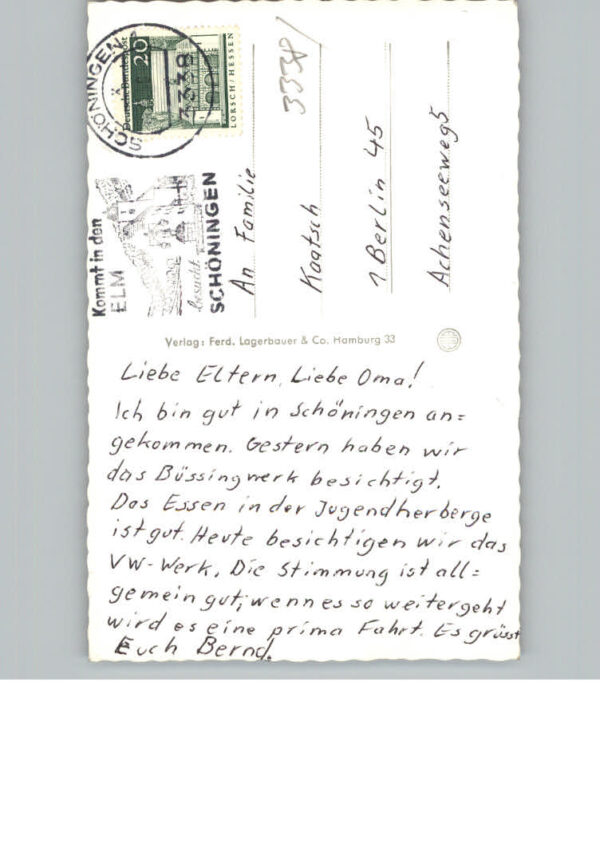 SCHÖNINGEN
3338
Deutsche Bundespost
20
LORSCH/HESSEN
Kommt in den
ELM
besucht
SCHÖNINGEN
3338/
An Familie
Kaatsch
1 Berlin 45
Achenseeweg 5
Verlag: Ferd. Lagerbauer & Co. Hamburg 33
Liebe Eltern, Liebe Oma!
Ich bin gut in Schöningen an=
gekommen. Gestern haben wir
das Büssingwerk besichtigt.
Das Essen in der Jugendherberge
ist gut. Heute besichtigen wir das
VW-Werk. Die Stimmung ist all=
gemein gut, wenn es so weitergeht
wird es eine prima Fahrt. Es grüsst
Euch Bernd.